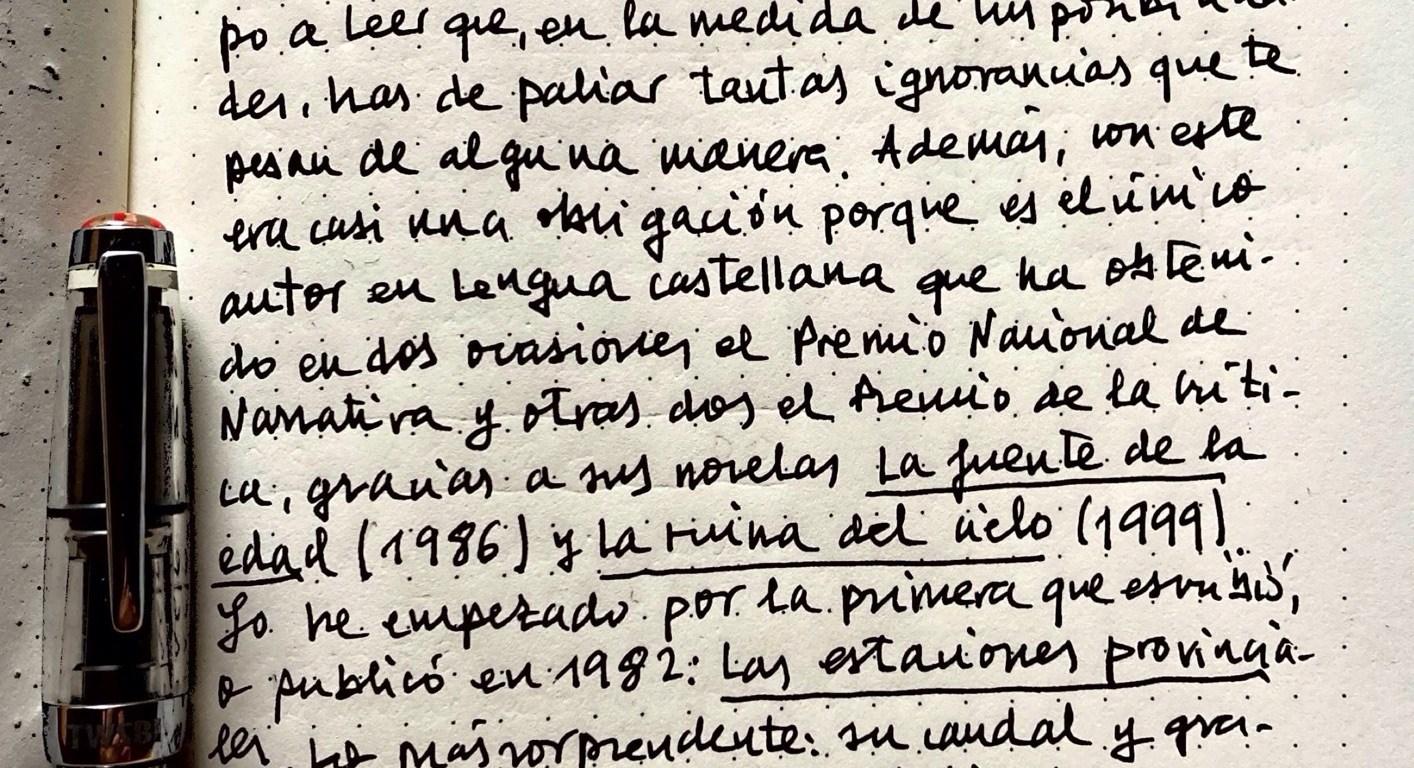 po a leer que, en la medida de tus posibilida-
des, has de paliar tantas ignorancias que te
pesan de alguna manera. Además, con este
era casi una obligación porque es el único
autor en lengua castellana que ha obteni-
do en dos ocasiones el Premio Nacional de
Narrativa y otras dos el Premio de la Críti-
ca, gracias a sus novelas La fuente de la
edad (1986) y La ruina del cielo (1999).
Yo he empezado por la primera que escribió,
o publicó en 1982: Las estaciones provincia-
les. Lo más sorprendente: su caudal y gra-
TWSBI